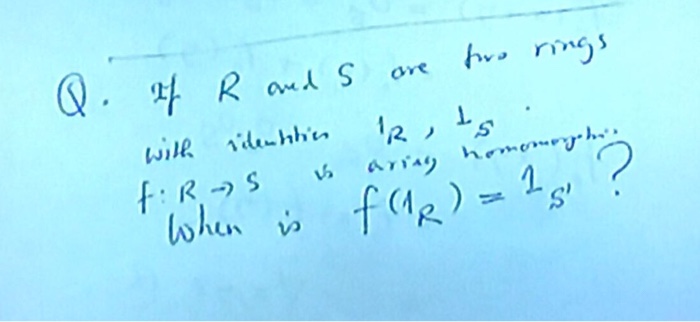 Q. If R and S are two rings
with identities 1R, 1S.
f: R → S is a ring homomorphism.
When is f(1R) = 1S?